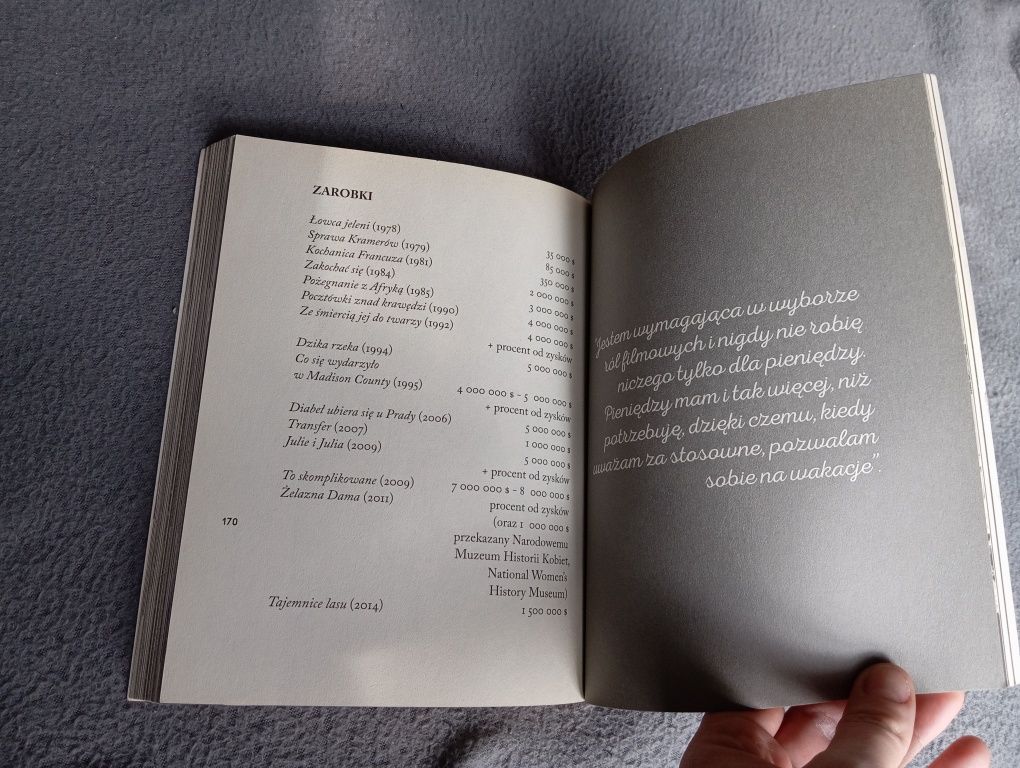 ZAROBKI
Łowca jeleni (1978) 35 000 $
Sprawa Kramerów (1979) 85 000 $
Kochanica Francuza (1981) 350 000 $
Zakochać się (1984) 2 000 000 $
Pożegnanie z Afryką (1985) 3 000 000 $
Pocztówki znad krawędzi (1990) 4 000 000 $
Ze śmiercią jej do twarzy (1992) 4 000 000 $
+ procent od zysków
Dzika rzeka (1994) 5 000 000 $
Co się wydarzyło
w Madison County (1995) 4 000 000 $ - 5 000 000 $
+ procent od zysków
Diabeł ubiera się u Prady (2006) 5 000 000 $
Transfer (2007) 1 000 000 $
Julie i Julia (2009) 5 000 000 $
+ procent od zysków
To skomplikowane (2009) 7 000 000 $ - 8 000 000 $
Żelazna Dama (2011) procent od zysków
(oraz 1 000 000 $
przekazany Narodowemu
Muzeum Historii Kobiet,
National Women's
History Museum)
Tajemnice lasu (2014) 1 500 000 $
170
Jestem wymagająca w wyborze
ról filmowych i nigdy nie robię
niczego tylko dla pieniędzy.
Pieniędzy mam i tak więcej, niż
potrzebuję, dzięki czemu, kiedy
uważam za stosowne, pozwalam
sobie na wakacje”.